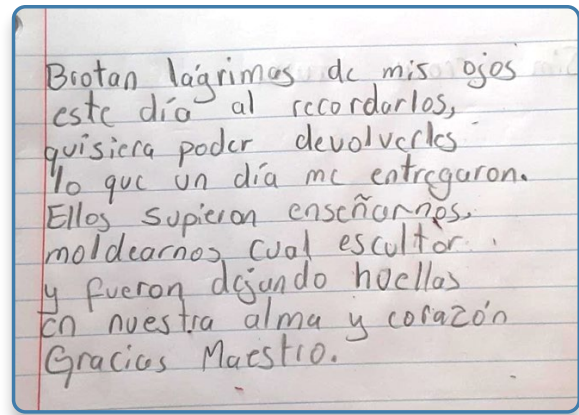 Brotan lágrimas de mis ojos
este día al recordarlos,
quisiera poder devolverles
lo que un día me entregaron.
Ellos supieron enseñarnos,
moldearnos cual escultor
y fueron dejando huellas
En nuestra alma y corazón
Gracias Maestro.